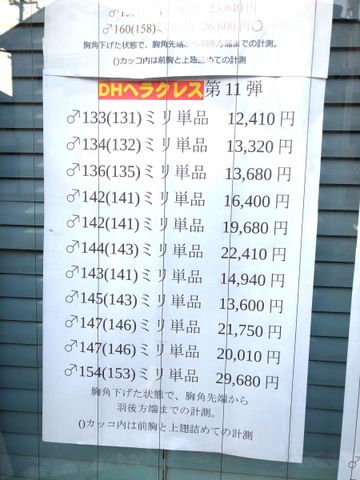 23,040円
♂160(158)ミリ単品 26,600円〇
胸角下げた状態で、胸角先端から羽後方端までの計測。
()カッコ内は前胸と上翅詰めての計測
DHヘラクレス第11弾
♂133(131)ミリ単品 12,410円
♂134(132)ミリ単品 13,320円
♂136(135)ミリ単品 13,680円
♂142(141)ミリ単品 16,400円
♂142(141)ミリ単品 19,680円
♂144(143)ミリ単品 22,410円
♂143(141)ミリ単品 14,940円
♂145(143)ミリ単品 13,600円
♂147(146)ミリ単品 21,750円
♂147(146)ミリ単品 20,010円
♂154(153)ミリ単品 29,680円
胸角下げた状態で、胸角先端から
羽後方端までの計測。
()カッコ内は前胸と上翅詰めての計測